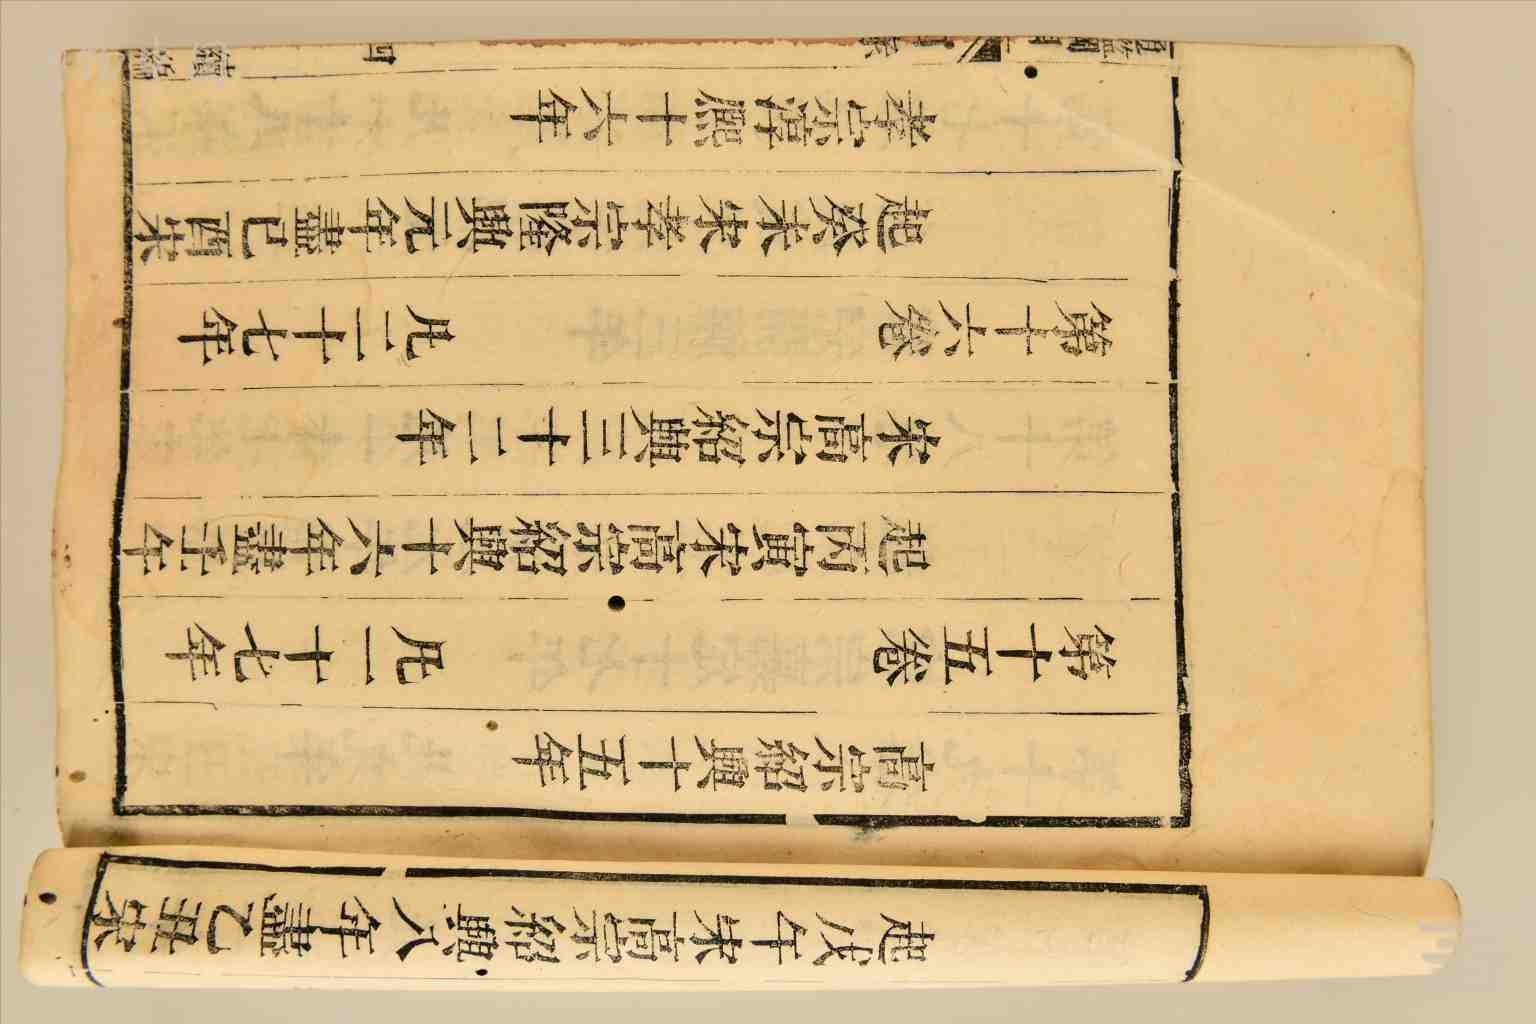 起戊午宋高宗紹興八年盡乙丑宋
高宗紹興十五年
第十五卷 凡一十七年
起丙寅宋高宗紹興十六年盡壬午
宋高宗紹興三十二年
第十六卷 凡二十七年
起癸未宋孝宗隆興元年盡己酉宋
孝宗淳熙十六年